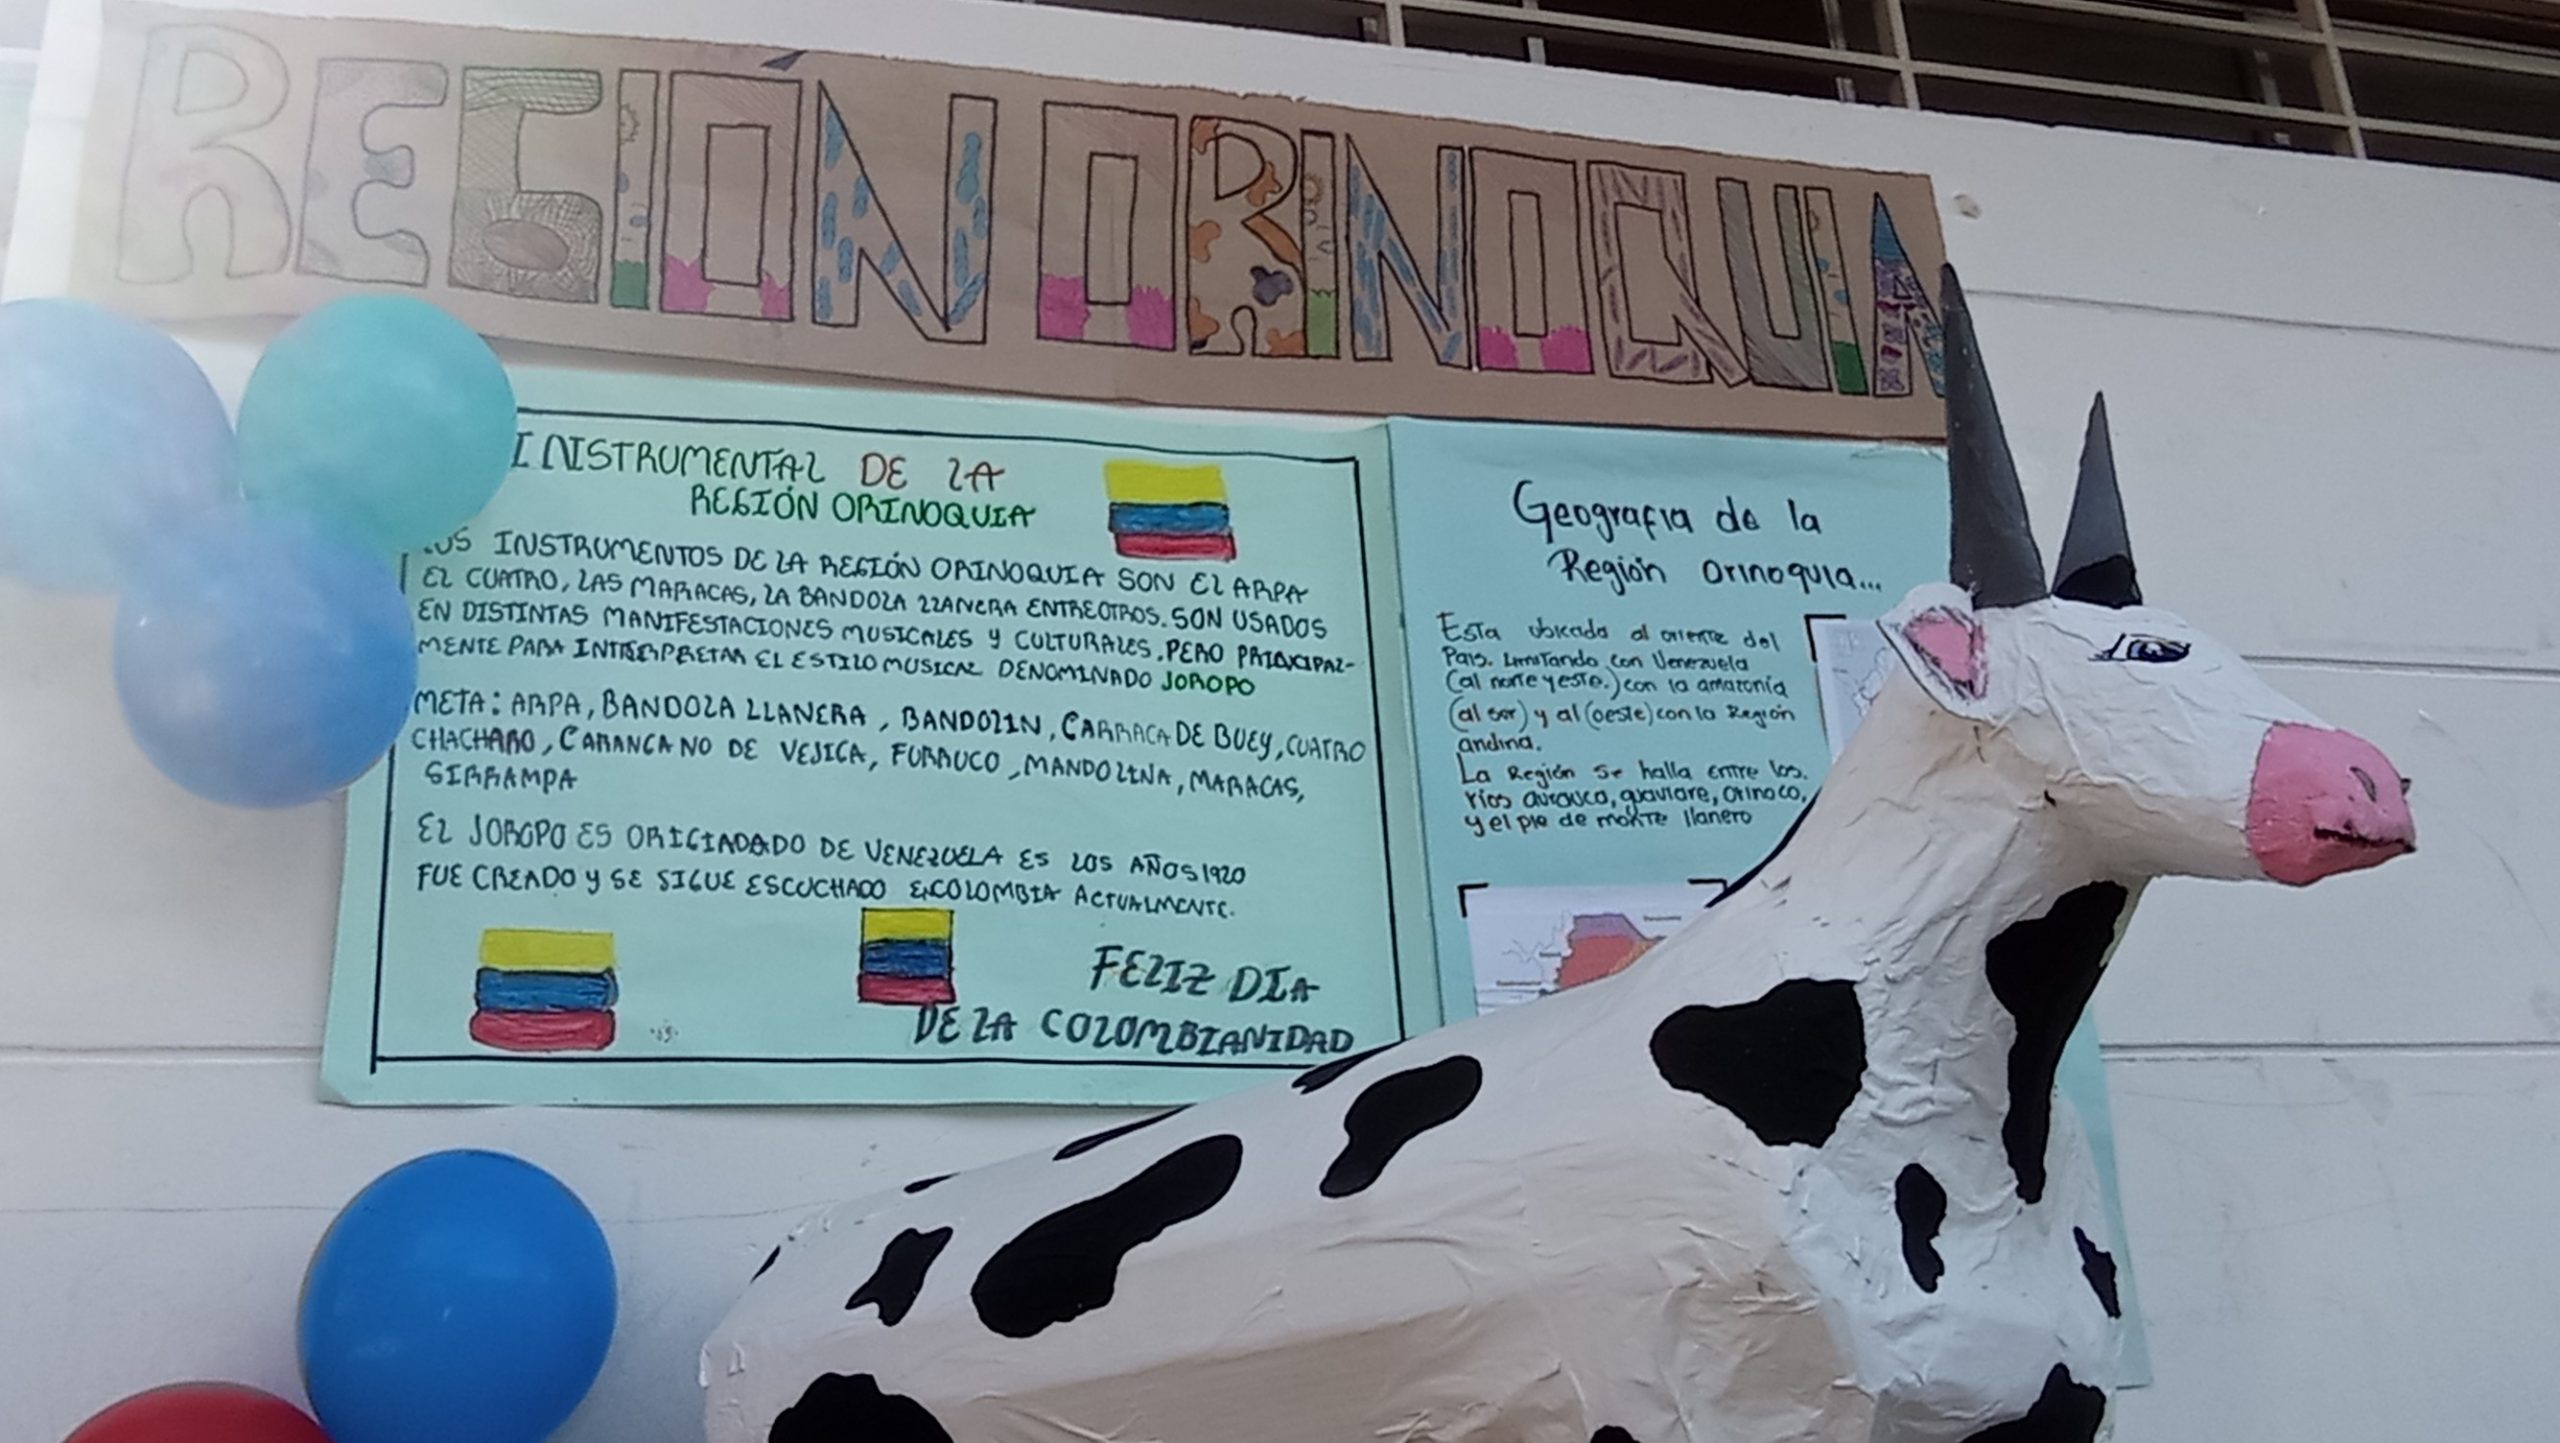 REGIÓN ORINOQUIA
INISTRUMENTAL DE LA
REGIÓN ORINOQUIA
LOS INSTRUMENTOS DE LA REGIÓN ORINOQUIA SON EL ARPA
EL CUATRO, LAS MARACAS, LA BANDOLA LLANERA ENTREOTROS. SON USADOS
EN DISTINTAS MANIFESTACIONES MUSICALES Y CULTURALES. PERO PRINCIPAL-
MENTE PARA INTERPRETAR EL ESTILO MUSICAL DENOMINADO JOROPO
META: ARPA, BANDOLA LLANERA, BANDOLIN, CARRACA DE BUEY, CUATRO
CHACHARO, CARANCANO DE VEJIGA, FURRUCO, MANDOLINA, MARACAS,
SIRRAMPA
EL JOROPO ES DE VENEZUELA ES LOS AÑOS 1920
FUE CREADO Y SE SIGUE ESCUCHADO COLOMBIA ACTUALMENTE.
FELIZ DIA
DE LA COLOMBIANIDAD
Geografia de la
Región Orinoquia...
Esta ubicada al oriente del
Pais. Limitando con Venezuela
(al norte y este.) con la amazonía
(al sur) y al (oeste) con la Región
andina.
La Región se halla entre los.
ríos guaviare, orinoco,
y el pie de monte llanero